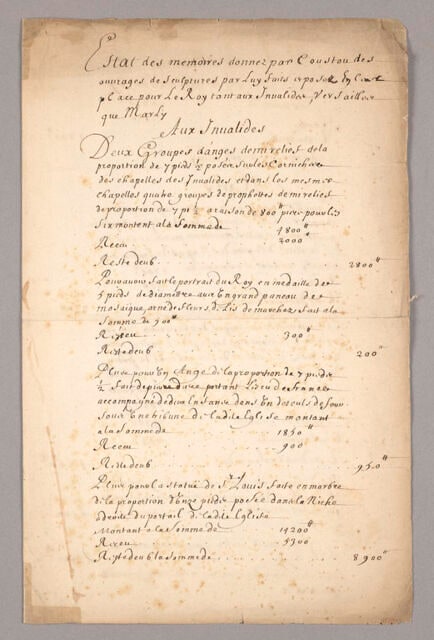 Estat des memoires donnez par Coustou des
ouvrages de sculptures par Luy faits et posez En
place pour Le Roy tant aux Invalides, Versailles
que Marly
Aux Invalides
Deux Groupes d'anges demi reliefs de la
proportion de 7 pieds ½ posée sur les Corniches
des chapelles des Invalides et dans les mesmes
chapelles quatre groupes de prophettes demi reliefs
de proportion de 7 pi ½ a raison de 800# piece pour les
Six montent a la Somme de 4800#
Receu 2000
Reste deub 2800#
Pour avoir fait le portrait du Roy en medaille de
5 pieds de diamettre avec Un grand paneau de
mosaique, orné de fleurs de Lis de fait a la
Somme de 500#
Receu 300#
Reste deub 200#
Plus pour Un Ange de la proportion de 7 pieds
½ fait de pierre portant de France
accompagné de dans
Une tribune de ladite Eglise montant
a la Somme de 1850#
Receu 900
Reste deub 950#
Plus pour la statue de St Louis faite en marbre
de la proportion d'onze pieds posée dans la Niche
a droite du portail de ladite Eglise
Montant a la Somme de 14200#
Receu 5300
Reste deub la Somme de 8900#